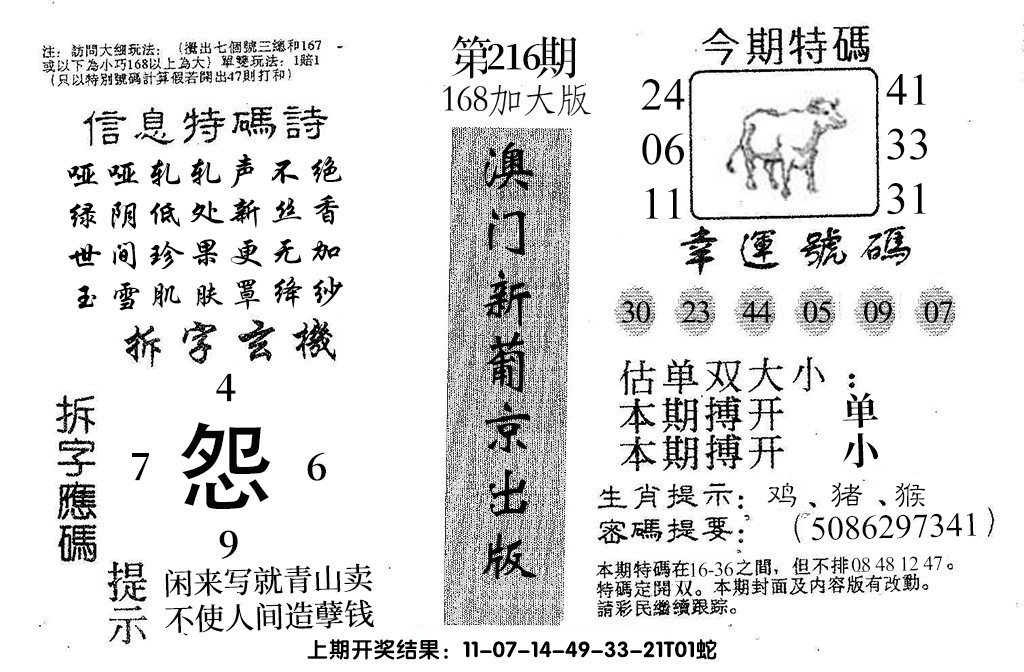 注：訪問大细玩法：（攪出七個號三總和167
或以下為小巧168以上為大）單雙玩法：1賠1
（只以特別號碼計算假若開出47則打和）
信息特碼詩
哑哑轧轧声不绝
绿阴低处新丝香
世间珍果更无加
玉雪肌肤罩绛纱
拆字玄機
4
拆字應碼
7 怨 6
9
提示
闲来写就青山卖
不使人间造孽钱
第216期
168加大版
澳门新葡京出版
今期特碼
24 41
06 33
11 31
幸運號碼
30 23 44 05 09 07
估单双大小：
本期搏开 单
本期搏开 小
生肖提示：鸡、猪、猴
密碼提要：（5086297341）
本期特碼在16-36之間，但不排08 48 12 47。
特碼定開双。本期封面及内容版有改動。
請彩民繼續跟踪。
上期开奖结果：11-07-14-49-33-21T01蛇